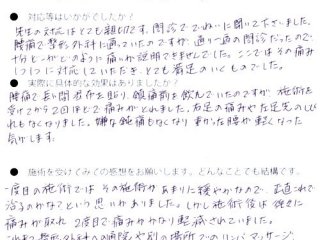 ● 対応等はいかがでしたか？
先生の対応はとても親切です。問診でていねいに聞いて下さいました。
腰痛で整形外科に通っていたのですが、通り一遍の問診だったので
十分どこがどのように痛いか説明できませんでした。ここではその痛み
1つ1つに対応していただき、とても満足のいくものでした。
● 実際に具体的な効果はありましたか？
腰痛で長い間湿布を貼り、鎮痛剤を飲んでいたのですが、施術を
受けてから2回ほどで痛みがとれました。右足の痛みや左足先のしび
れもなくなりました。嫌な鈍痛もなくなり まがった腰が軽くなった
気がします。
● 施術を受けてみての感想をお願いします。どんなことでも結構です。
一度目の施術では その施術があまりに穏やかなので、正直これで
治るのかなぁという思いがありました。しかし施術後は 徐々に
痛みが取れ 2度目で痛みがかなり軽減されていました。
これまで整形外科への通院や別の場所でのリンパマッサージ